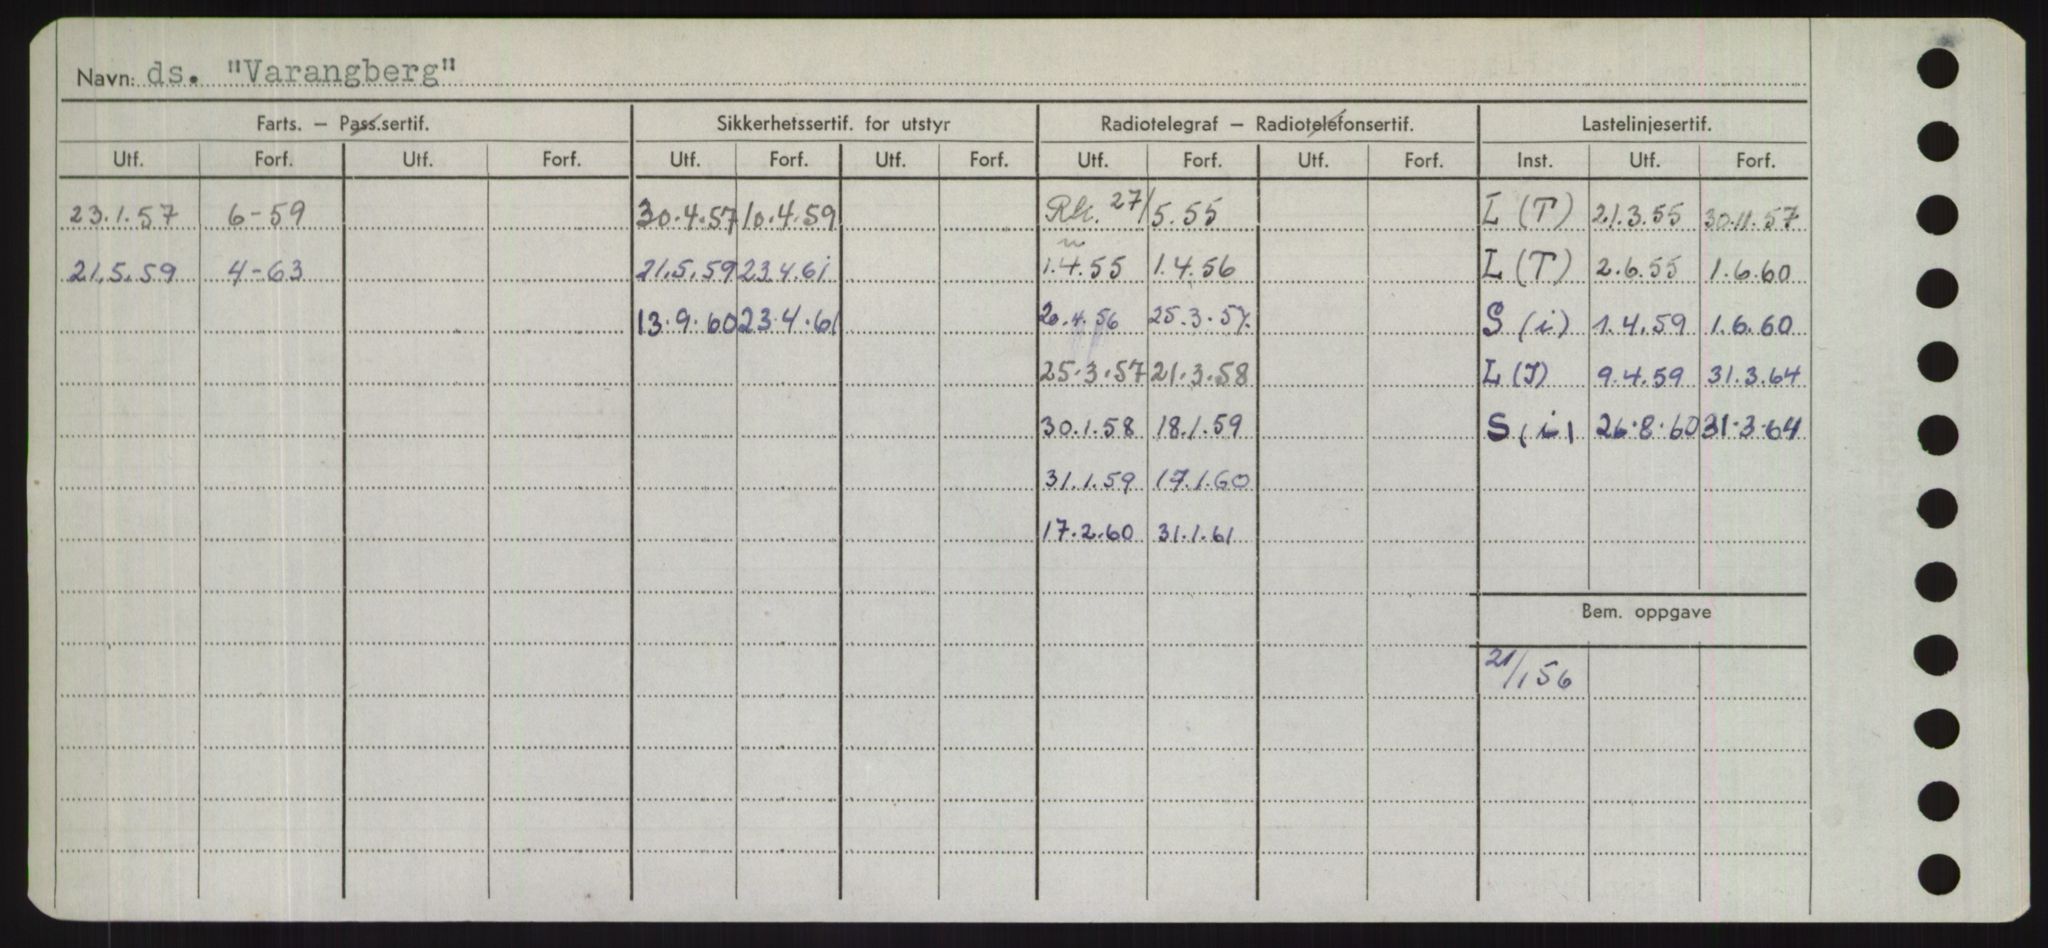 Navn: ds. "Varangberg"
Farts. – Pass.sertif. Sikkerhetssertif. for utstyr Radiotelegraf – Radiotelefonsertif. Lastelinjesertif.
Utf. Forf. Utf. Forf. Utf. Forf. Utf. Forf. Utf. Forf. Utf. Forf. Inst. Utf. Forf.
23.1.57 6-59 30.4.57 10.4.59 27/5.55 L (T) 21.3.55 30.11.57
21.5.59 4-63 21.5.59 23.4.61 1.4.55 1.4.56 L (T) 2.6.55 1.6.60
13.9.60 23.4.61 26.4.56 25.3.57. S (i) 1.4.59 1.6.60
25.3.57 21.3.58 L (T) 9.4.59 31.3.64
30.1.58 18.1.59 S (i) 26.8.60 31.3.64
31.1.59 17.1.60
17.2.60 31.1.61
Bem. oppgave
21/1 56